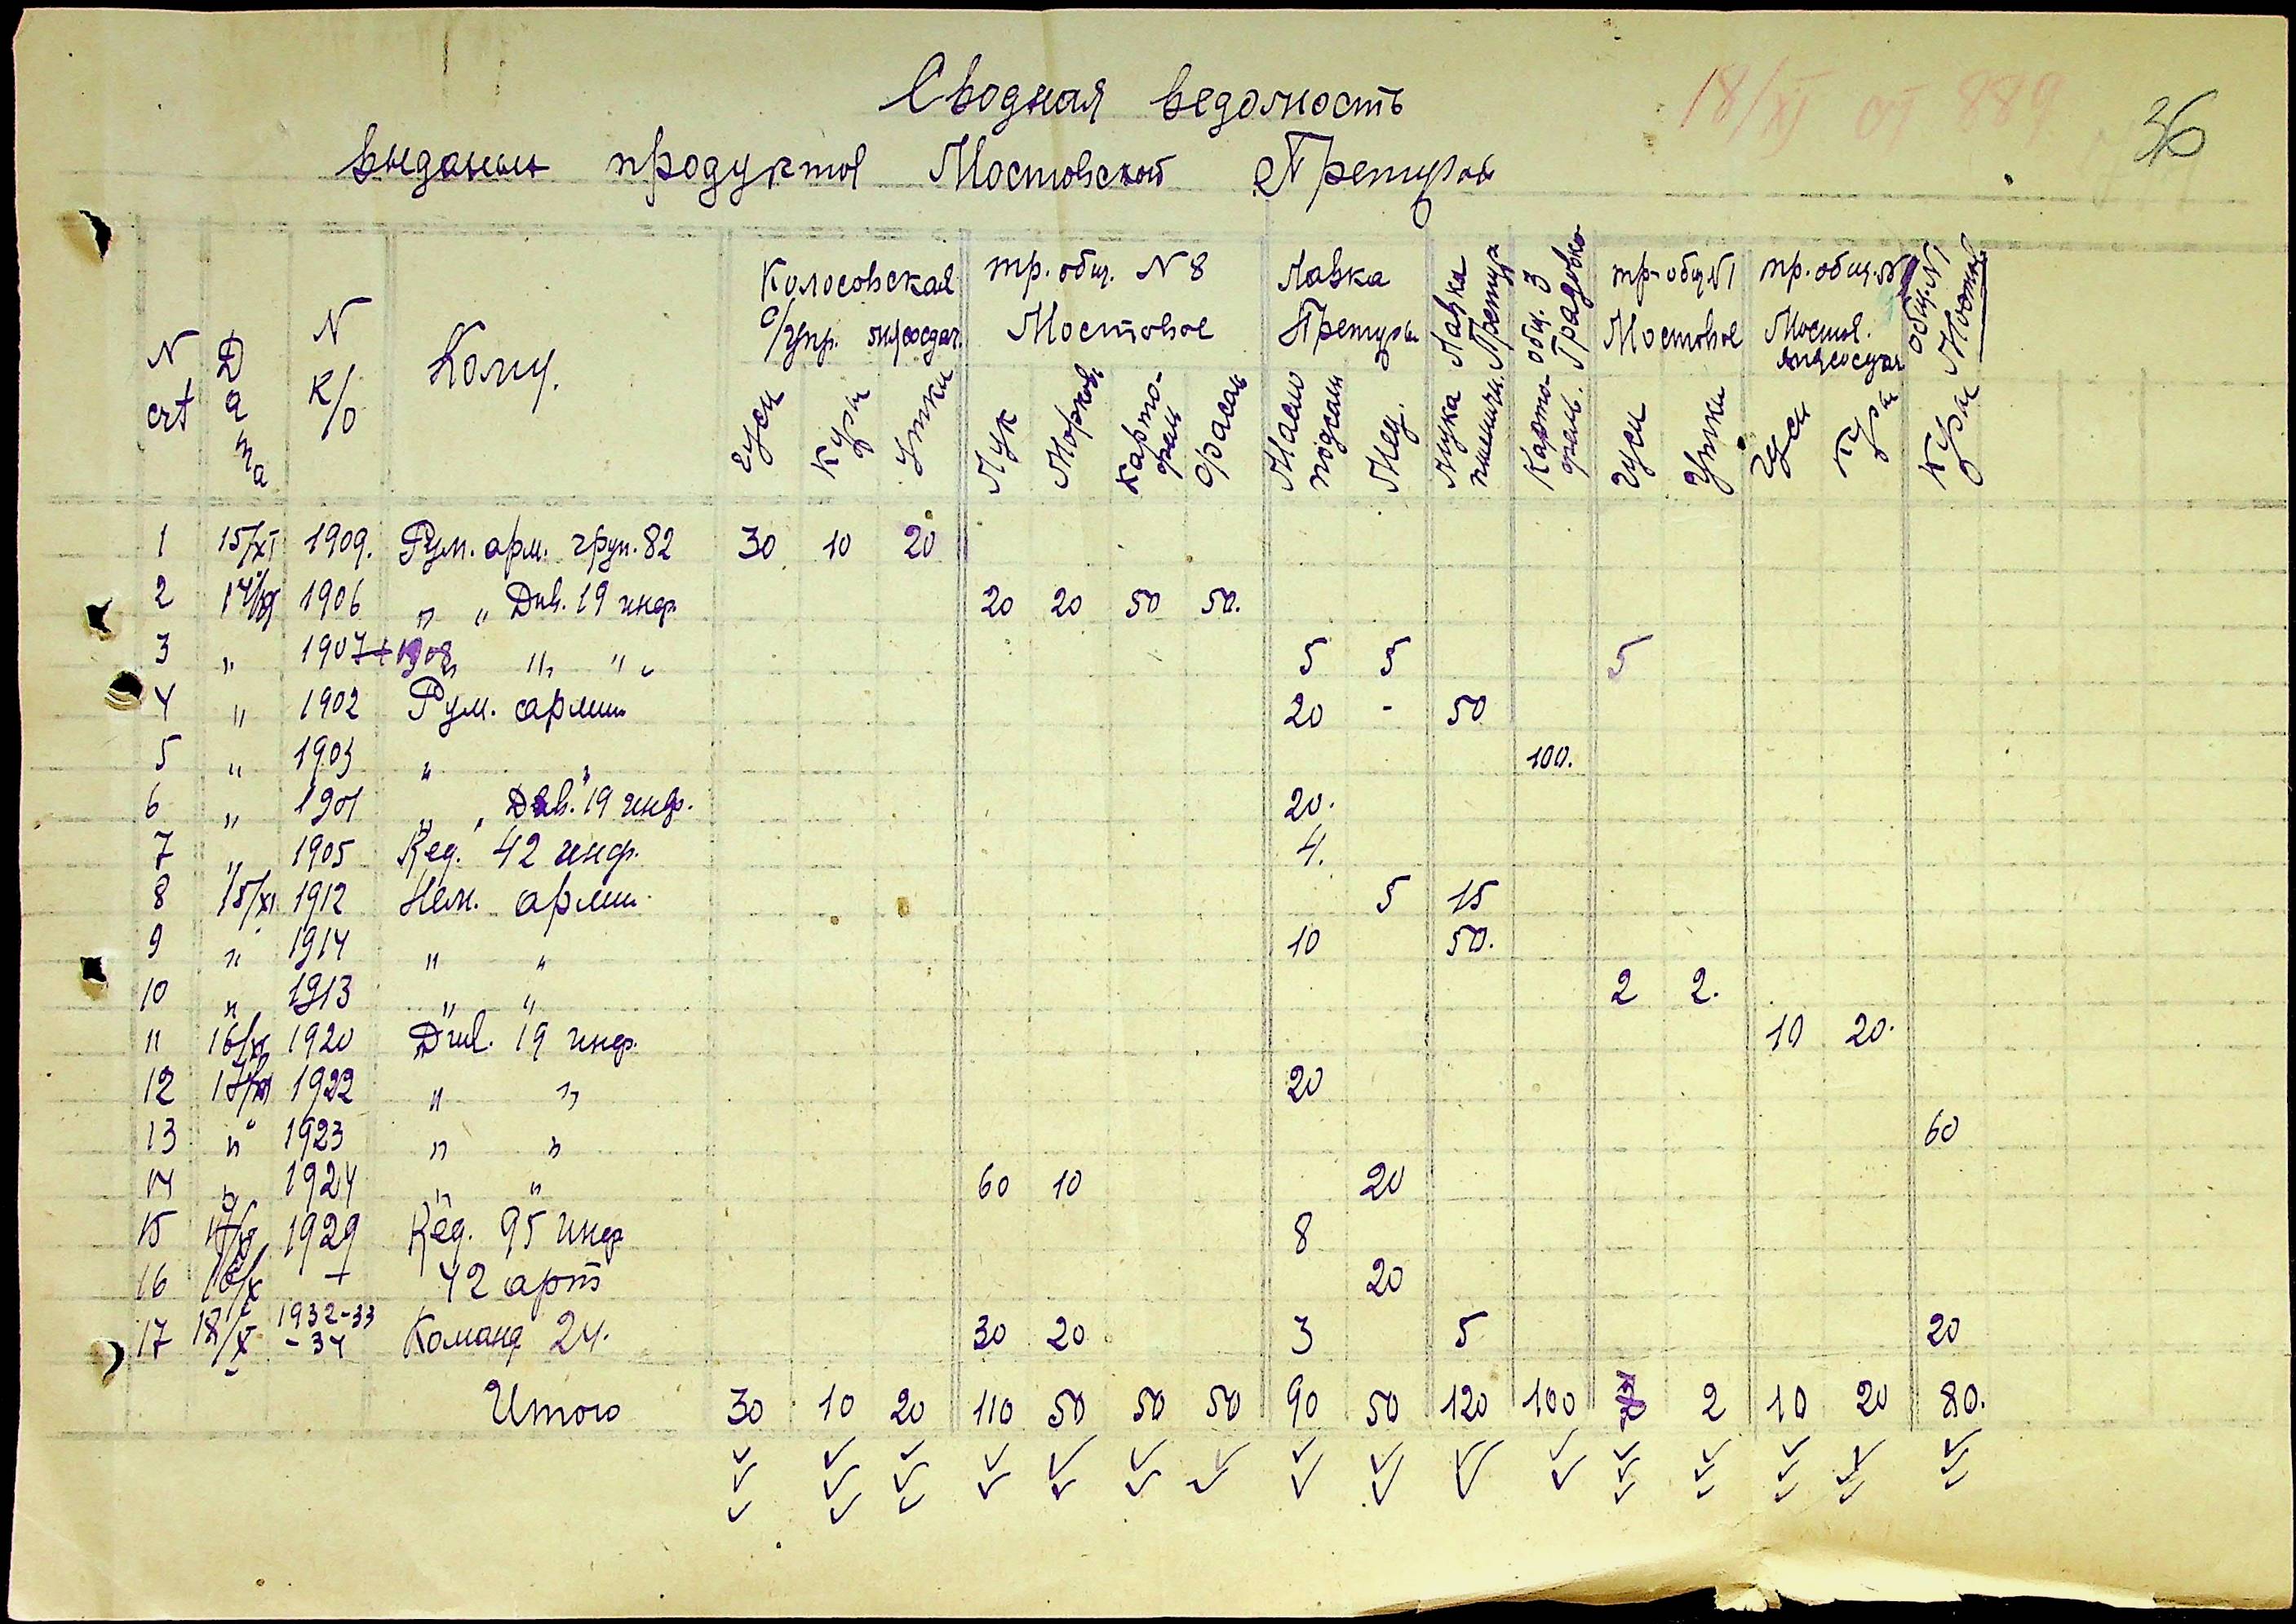 18/XI от 889
36
Сводная ведомость
выданных продуктов Мостовской Претуры
N ст Дата N к/о Кому. Колосовская с/упр. мясосдач. тр. общ. N 8 Мостовое Лавка Претуры Лавка Претур. общ. 3 Градовко тр. общ N1 Мостовое тр. общ. N Мостов. мясосдач общ. N1 Мостов
гуси куры утки Лук Морковь картофель фасоль Масло подсолн Мед. мука пшенич. Картофель. гуси утки гуси куры куры
1 15/XI 1909. Рум. арм. груп. 82 30 10 20
2 14/XI 1906 " " Див. 19 инф. 20 20 50 50.
3 " 1907+1908 " " " 5 5 5
4 " 1902 Рум. армии 20 - 50
5 " 1903 " " 100.
6 " 1901 " " Див. 19 инф. 20.
7 " 1905 Ред. 42 инф. 4.
8 15/XI 1912 Нем. армии 5 15
9 " 1914 " " 10 50.
10 " 1913 " " 2 2.
11 16/XI 1920 Див. 19 инф. 10 20.
12 17/XI 1922 " " 20
13 " 1923 " " 60
14 " 1924 " " 60 10 20
15 17/XI 1929 Ред. 95 инф 8
16 16/X + 42 арт 20
17 18/X 1932-33-34 Команд 24. 30 20 3 5 20
Итого 30 10 20 110 50 50 50 90 50 120 100 7 2 10 20 80.